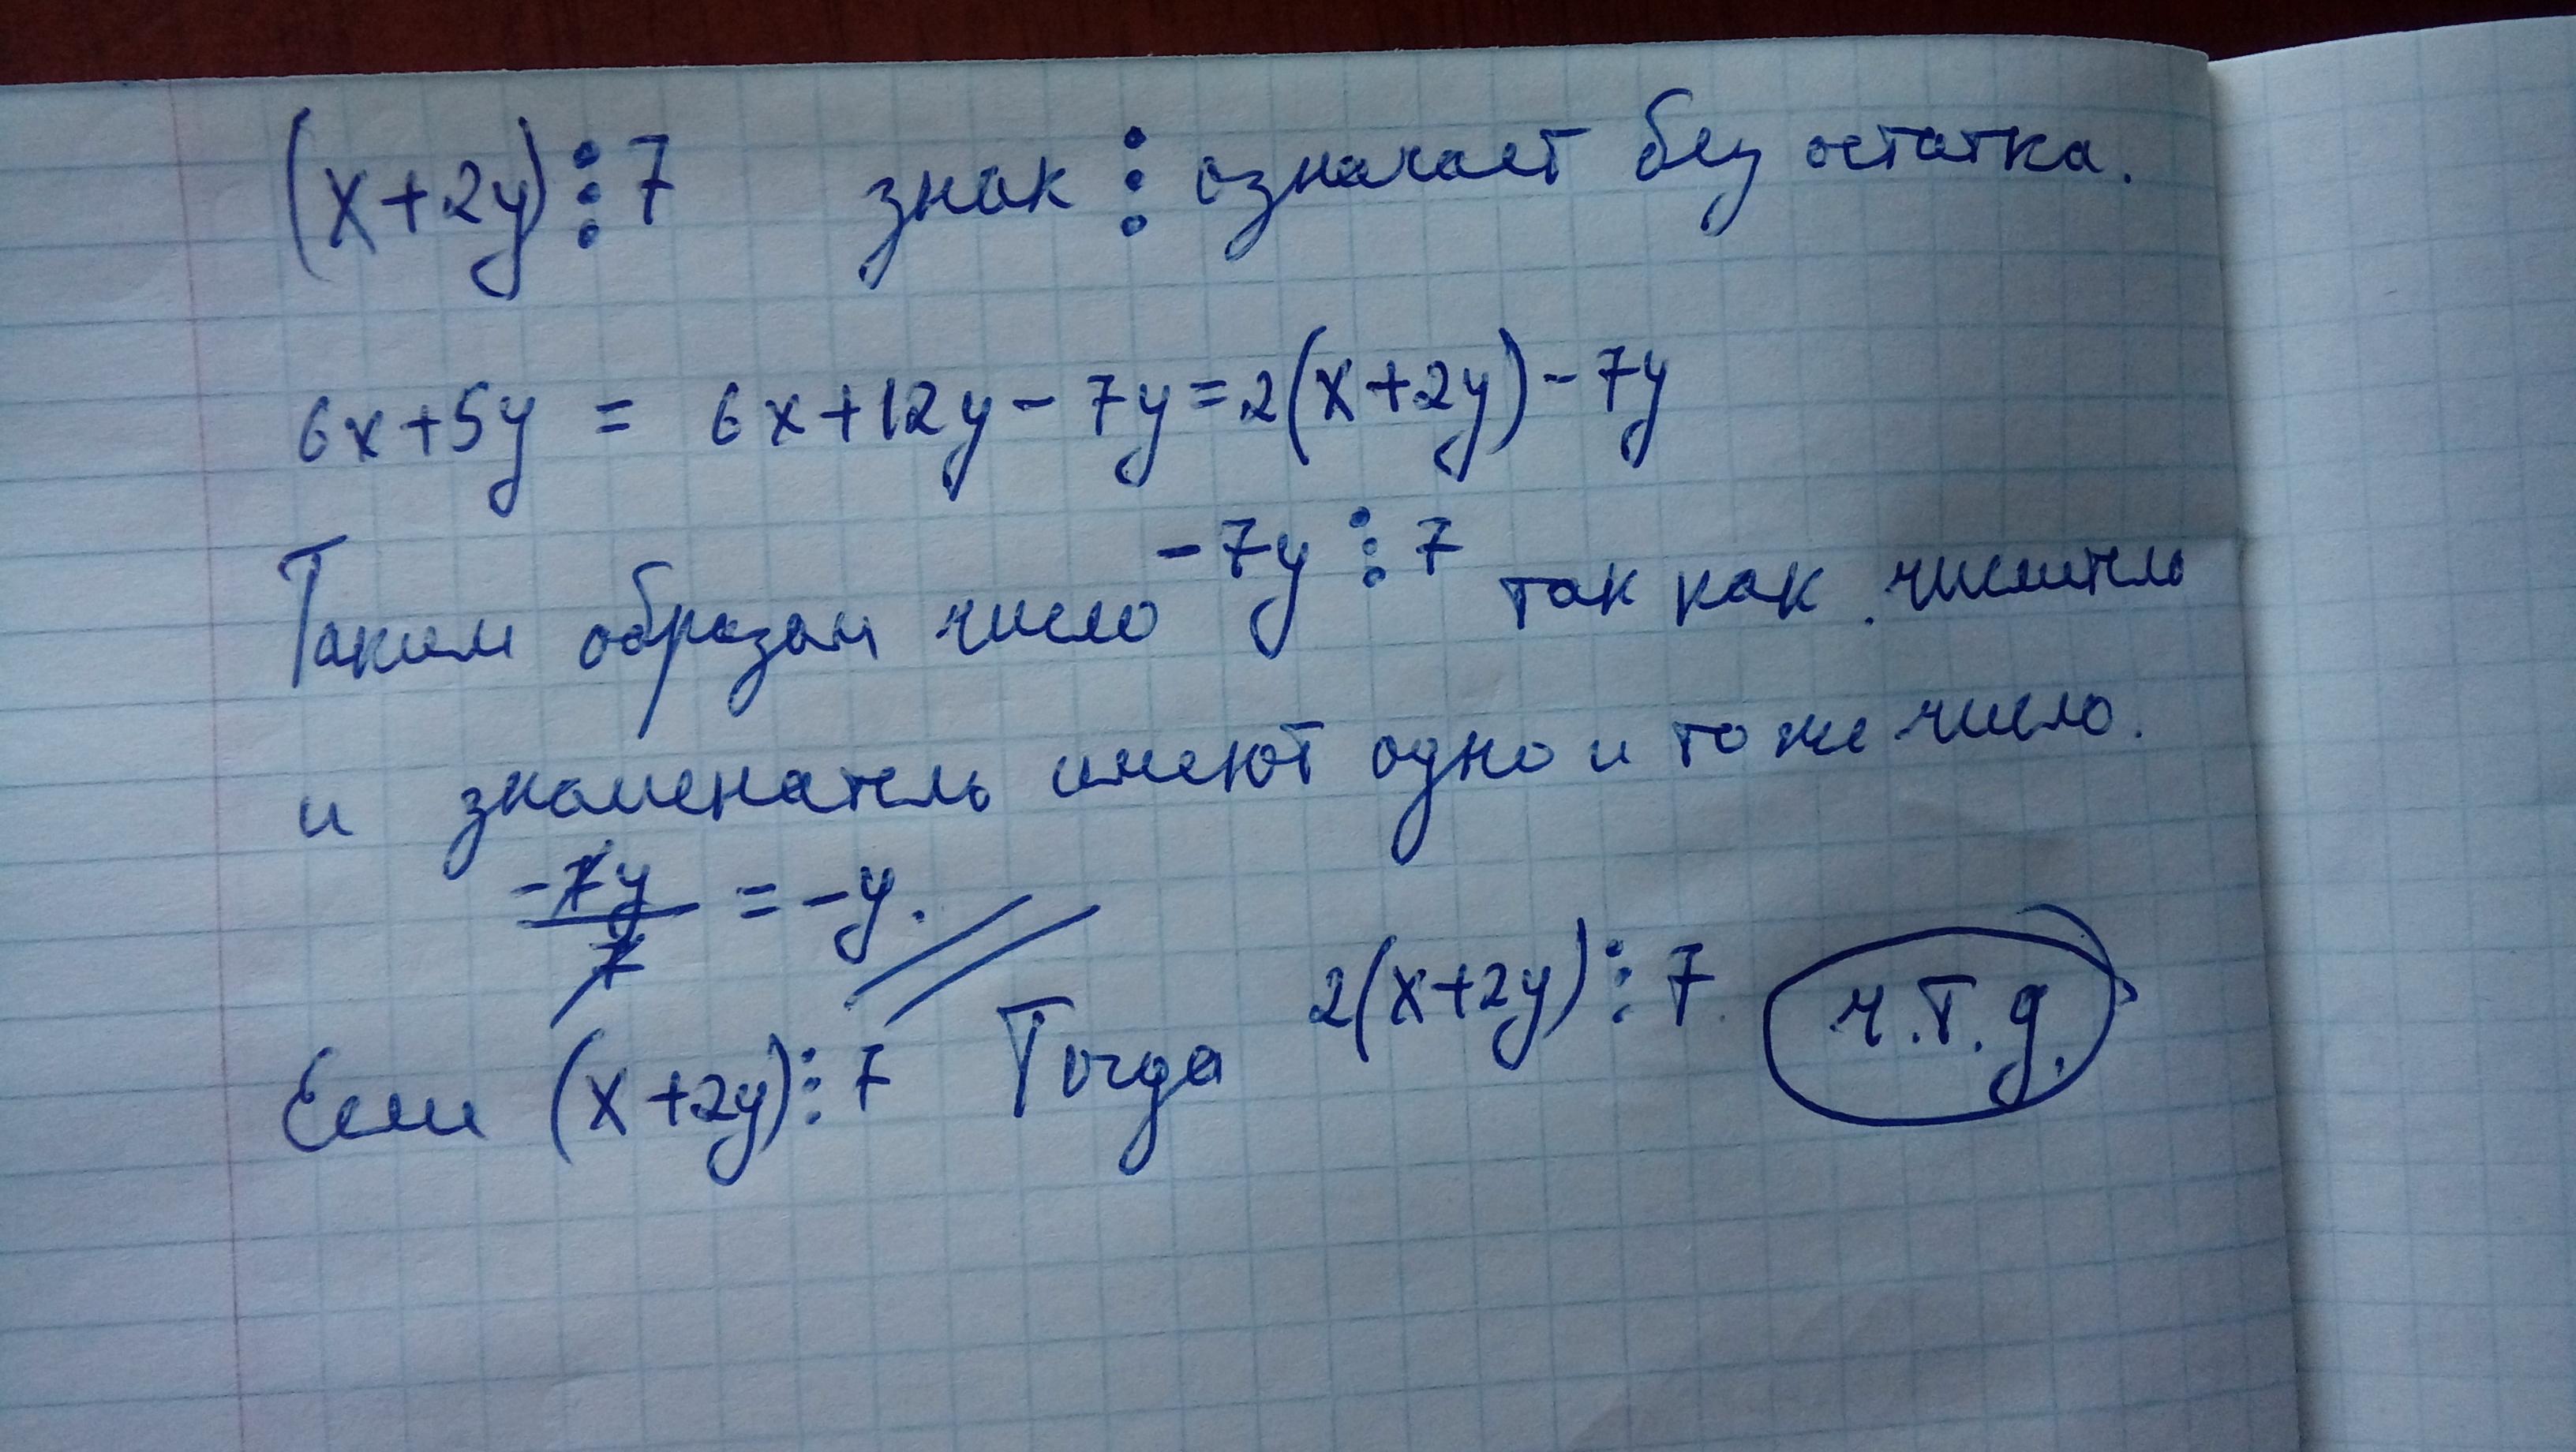 (x+2y)⋮7 знак ⋮ означает без остатка.
6x+5y = 6x+12y-7y=2(x+2y)-7y
Таким образом число -7y⋮7 так как числитель
и знаменатель имеют одно и то же число.
-7y/7 = -y.
Если (x+2y)⋮7 Тогда 2(x+2y)⋮7. ч.т.д.